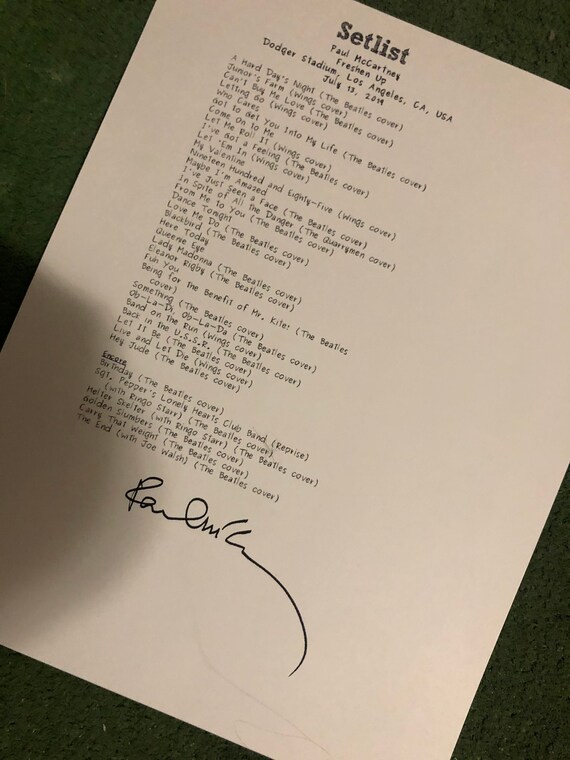 Setlist
Paul McCartney
Freshen Up
Dodger Stadium, Los Angeles, CA, USA
July 13, 2019
A Hard Day's Night (The Beatles cover)
Junior's Farm (Wings cover)
Can't Buy Me Love (The Beatles cover)
Letting Go (Wings cover)
Who Cares
Got to Get You Into My Life (The Beatles cover)
Come On to Me
Let Me Roll It (Wings cover)
I've Got a Feeling (The Beatles cover)
Let 'Em In (Wings cover)
My Valentine
Nineteen Hundred and Eighty-Five (Wings cover)
Maybe I'm Amazed
I've Just Seen a Face (The Beatles cover)
In Spite of All the Danger (The Quarrymen cover)
From Me to You (The Beatles cover)
Dance Tonight
Love Me Do (The Beatles cover)
Blackbird (The Beatles cover)
Here Today
Queenie Eye
Lady Madonna (The Beatles cover)
Eleanor Rigby (The Beatles cover)
Fuh You
Being for the Benefit of Mr. Kite! (The Beatles
cover)
Something (The Beatles cover)
Ob-La-Di, Ob-La-Da (The Beatles cover)
Band on the Run (Wings cover)
Back in the U.S.S.R. (The Beatles cover)
Let It Be (The Beatles cover)
Live and Let Die (Wings cover)
Hey Jude (The Beatles cover)
Encore
Birthday (The Beatles cover)
Sgt. Pepper's Lonely Hearts Club Band (Reprise)
(with Ringo Starr) (The Beatles cover)
Helter Skelter (with Ringo Starr) (The Beatles cover)
Golden Slumbers (The Beatles cover)
Carry That Weight (The Beatles cover)
The End (with Joe Walsh) (The Beatles cover)